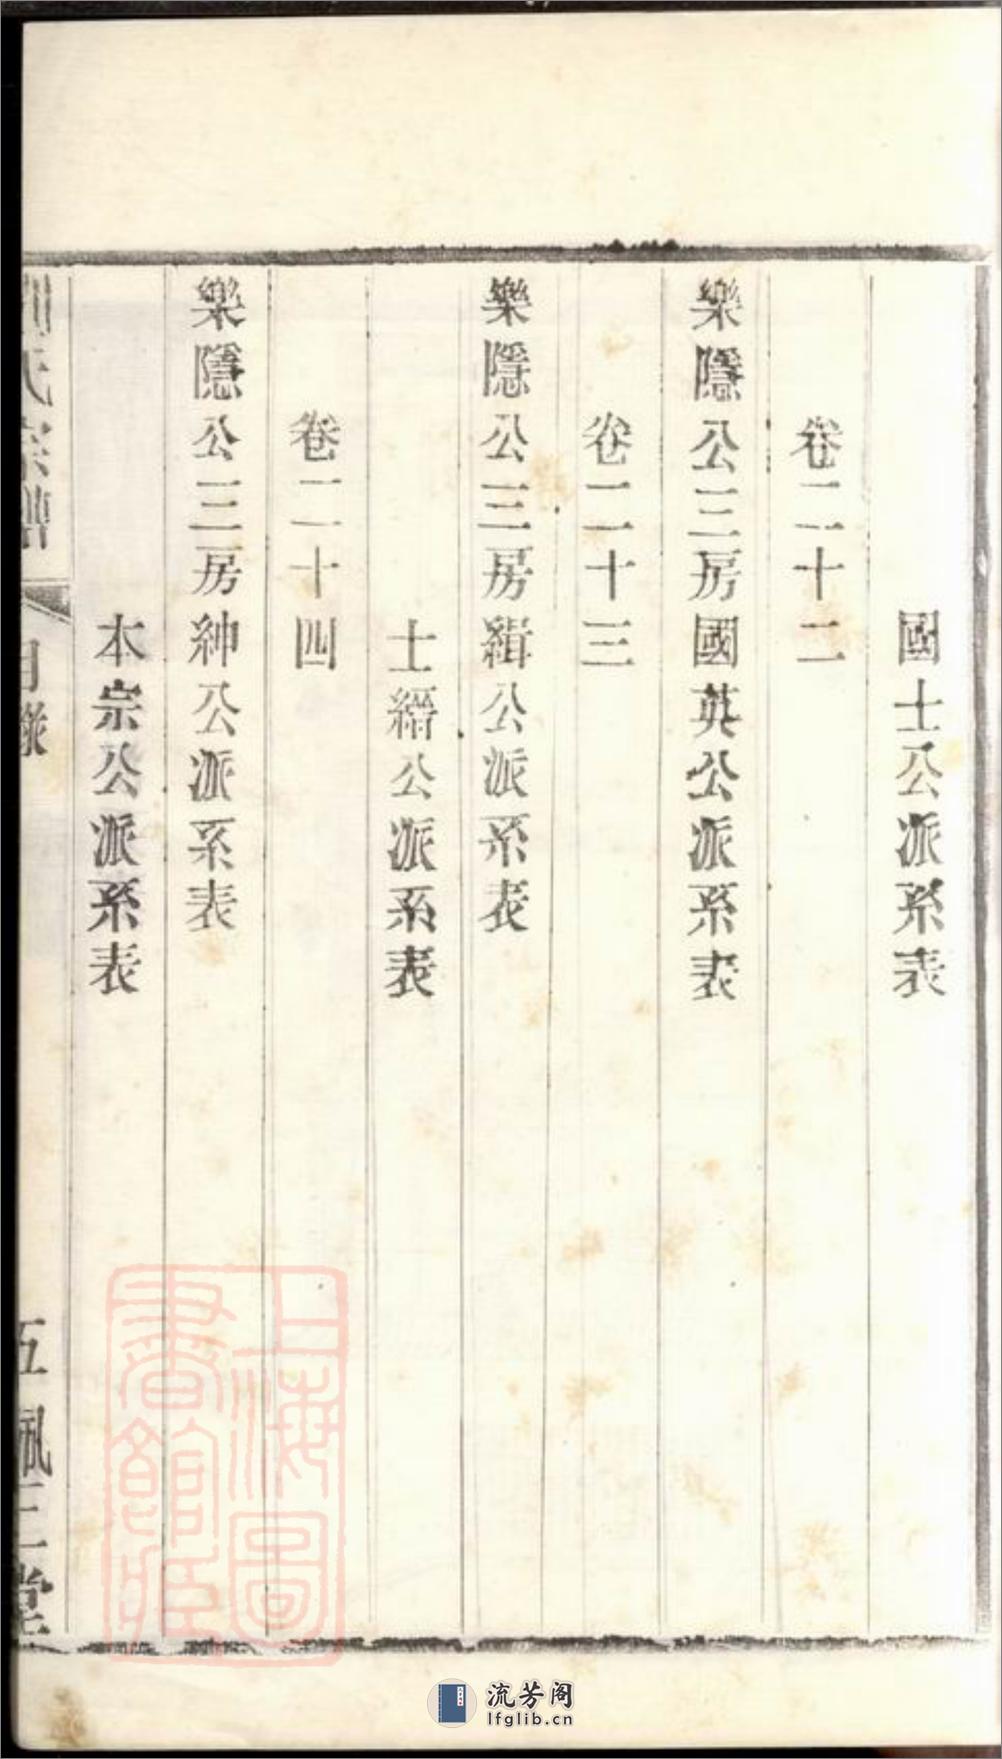 國士公派系表
卷二十二
樂隱公三房國英公派系表
卷二十三
樂隱公三房緝公派系表
士縉公派系表
卷二十四
樂隱公三房紳公派系表
本宗公派系表
氏宗譜
目錄
五
珮三堂
上海圖
書館藏
流芳阁
lfglib.cn